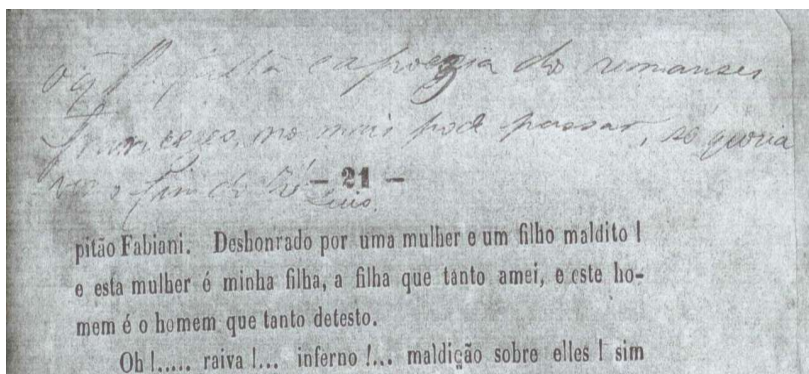 falta a poezia dos romanses
francezes, no mais pode passar, só queria
ver o fim do
— 21 —
pitão Fabiani. Deshonrado por uma mulher e um filho maldito !
e esta mulher é minha filha, a filha que tanto amei, e este ho-
mem é o homem que tanto detesto.
Oh !..... raiva !... inferno !... maldição sobre elles ! sim